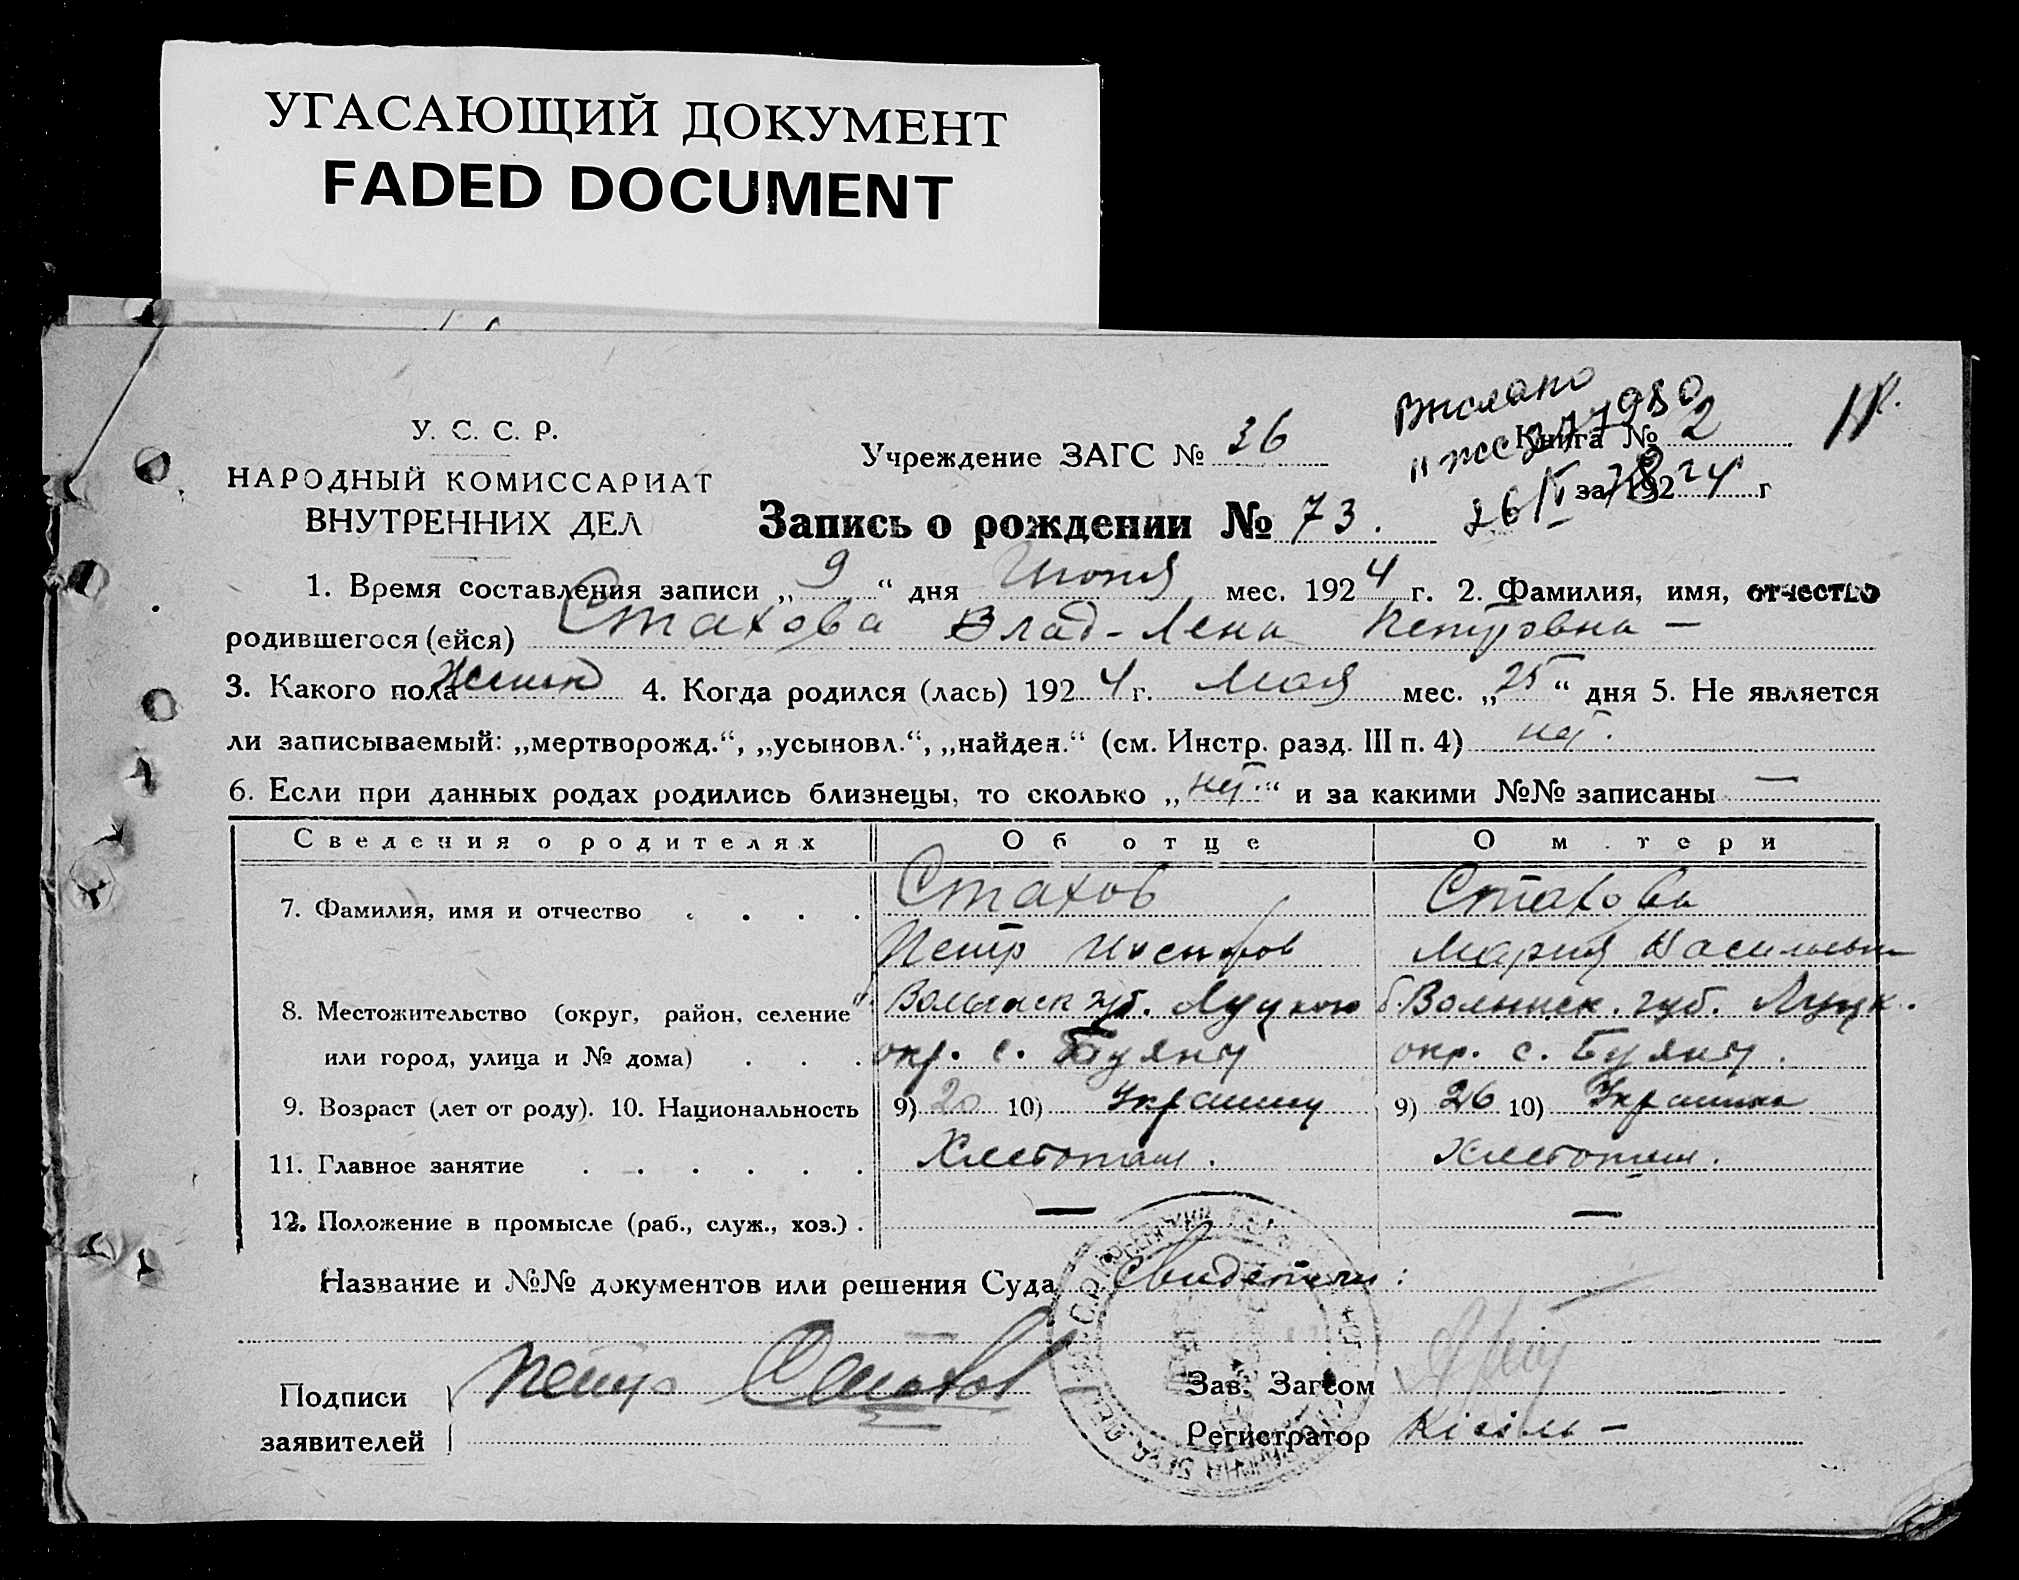 УГАСАЮЩИЙ ДОКУМЕНТ
FADED DOCUMENT
У. С. С. Р.
НАРОДНЫЙ КОМИССАРИАТ
ВНУТРЕННИХ ДЕЛ
Учреждение ЗАГС № 36
Выслано
Книга № 2
за 1924 г
26
Запись о рождении № 73.
1. Время составления записи „9“ дня Июня мес. 1924 г. 2. Фамилия, имя, отчество
родившегося (ейся) Стахова Влад-Лена Петровна —
3. Какого пола женск 4. Когда родился (лась) 1924 г. Мая мес. „25“ дня 5. Не является
ли записываемый: „мертворожд.“, „усыновл.“, „найден.“ (см. Инстр. разд. III п. 4) нет.
6. Если при данных родах родились близнецы, то сколько „нет.“ и за какими №№ записаны —
Сведения о родителях Об отце О м.тери
7. Фамилия, имя и отчество . . . . Стахов Стахова
Петр Мария
8. Местожительство (округ, район, селение Волынск губ. Луцкого б. Волынск. губ. Луцк.
или город, улица и № дома) . . . окр. с. Буяны окр. с. Буяны.
9. Возраст (лет от роду). 10. Национальность 9) 20 10) Украинец 9) 26 10) Украинка
11. Главное занятие . . . . . . Хлебопаш. Хлебопаш.
12. Положение в промысле (раб., служ., хоз.) . — —
Название и №№ документов или решения Суда Свидетели:
Подписи
заявителей
Петр Стахов
Зав. Загсом
Регистратор Кісіль —